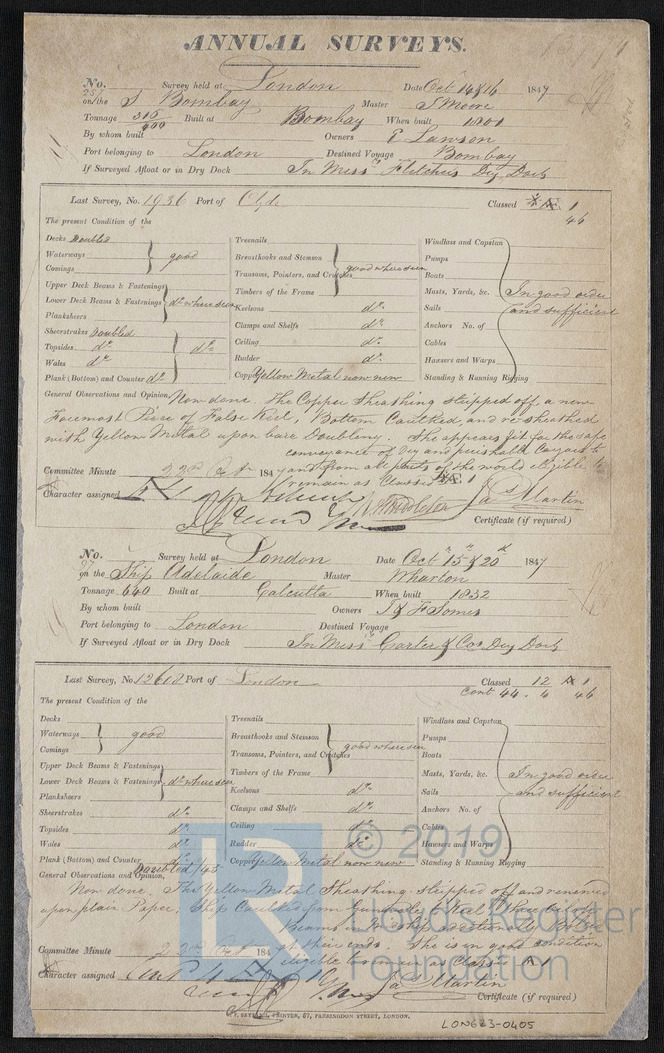 ANNUAL SURVEYS.
No. Survey held at London Date Oct 14 & 16 1847
on the S Bombay Master J Moore
Tonnage 400 Built at Bombay When built 1801
By whom built Owners Lawson
Port belonging to London Destined Voyage Bombay
If Surveyed Afloat or in Dry Dock In Mess Fletchers Dry Dock
Last Survey, No. 1936 Port of Clyde Classed 1
46
The present Condition of the
Decks Doubled
Waterways good
Comings
Upper Deck Beams & Fastenings
Lower Deck Beams & Fastenings do where seen
Planksheers
Sheerstrakes Doubled
Topsides do do
Wales do
Plank (Bottom) and Counter do
Treenails
Breasthooks and Stemson
Transoms, Pointers, and Crutches good where seen
Timbers of the Frame
Keelsons do
Clamps and Shelfs do
Ceiling do
Rudder do
Copper Yellow Metal now new
Windlass and Capstan
Pumps
Boats
Masts, Yards, &c. In good order
Sails and sufficient
Anchors No. of
Cables
Hawsers and Warps
Standing & Running Rigging
General Observations and Opinion, Now done. The Copper Sheathing stripped off a new
Foremost Piece of False Keel, Bottom Caulked, and resheathed
with Yellow Metal upon bare Doubling. She appears fit for the safe
conveyance of Dry and perishable Cargoes to
Committee Minute 22nd Oct 184 and from all parts of the world eligible to
remain as Classed
Character assigned Jas Martin
Certificate (if required)
No. Survey held at London Date Oct 15 & 20 1847
on the Ship Adelaide Master Wharton
Tonnage 640 Built at Calcutta When built 1832
By whom built Owners T & F Somes
Port belonging to London Destined Voyage
If Surveyed Afloat or in Dry Dock In Mess Carter & Cos Dry Dock
Last Survey, No. 12618 Port of London Classed 12 A 1
Cont 44. 4 46
The present Condition of the
Decks
Waterways good
Comings
Upper Deck Beams & Fastenings
Lower Deck Beams & Fastenings do where seen
Planksheers
Sheerstrakes do
Topsides do
Wales do
Plank (Bottom) and Counter Doubled /45
Treenails
Breasthooks and Stemson
Transoms, Pointers, and Crutches good where seen
Timbers of the Frame
Keelsons do
Clamps and Shelfs do
Ceiling do
Rudder do
Copper Yellow Metal now new
Windlass and Capstan
Pumps
Boats
Masts, Yards, &c. In good order
Sails and sufficient
Anchors No. of
Cables
Hawsers and Warps
Standing & Running Rigging
General Observations and Opinion,
Now done. The Yellow Metal Sheathing stripped off and renewed
upon plain Paper, Ship Caulked from
Beams
at their ends. She is in good condition
Committee Minute 22nd Oct 184
eligible to remain as Classed A 1
Character assigned Jas Martin
Certificate (if required)
PRINTER, 67, FARRINGDON STREET, LONDON.
LON623-0405
© 2019
Lloyd's Register
Foundation
LR